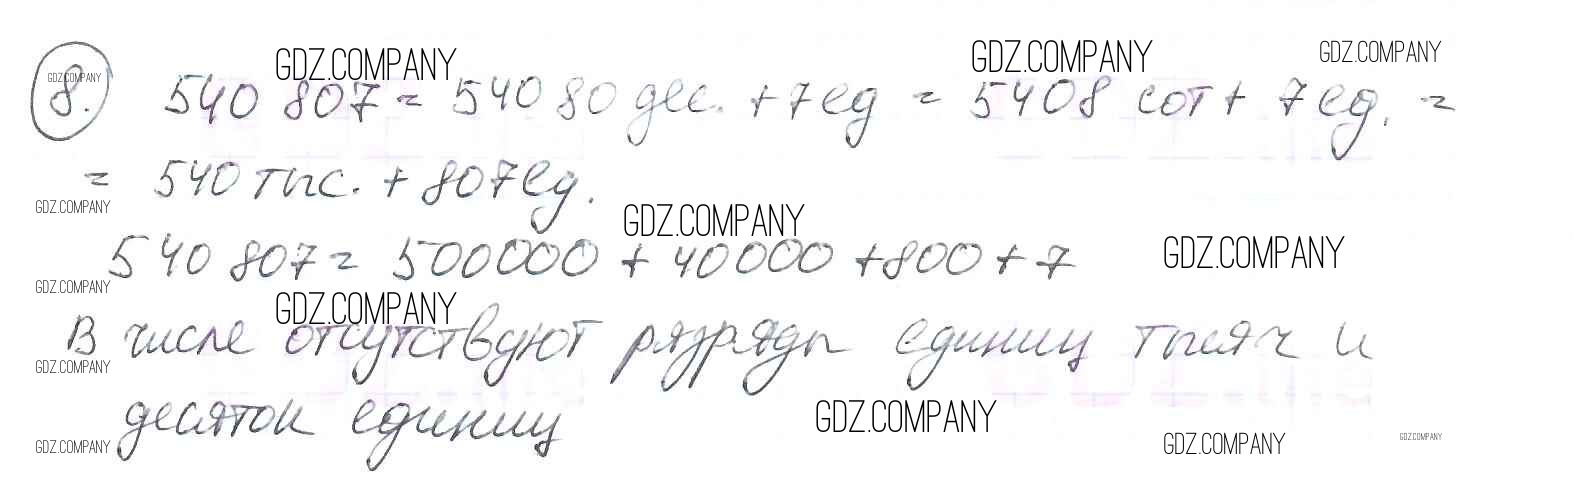 GDZ.COMPANY GDZ.COMPANY GDZ.COMPANY
GDZ.COMPANY
8. 540 807 = 540 80 дес. + 7 ед = 5408 сот + 7 ед. =
= 540 тыс. + 807 ед.
GDZ.COMPANY GDZ.COMPANY
540 807 = 500000 + 40000 + 800 + 7
GDZ.COMPANY
GDZ.COMPANY GDZ.COMPANY
В числе отсутствуют разряды единиц тысяч и
GDZ.COMPANY
десяток единиц
GDZ.COMPANY
GDZ.COMPANY GDZ.COMPANY GDZ.COMPANY